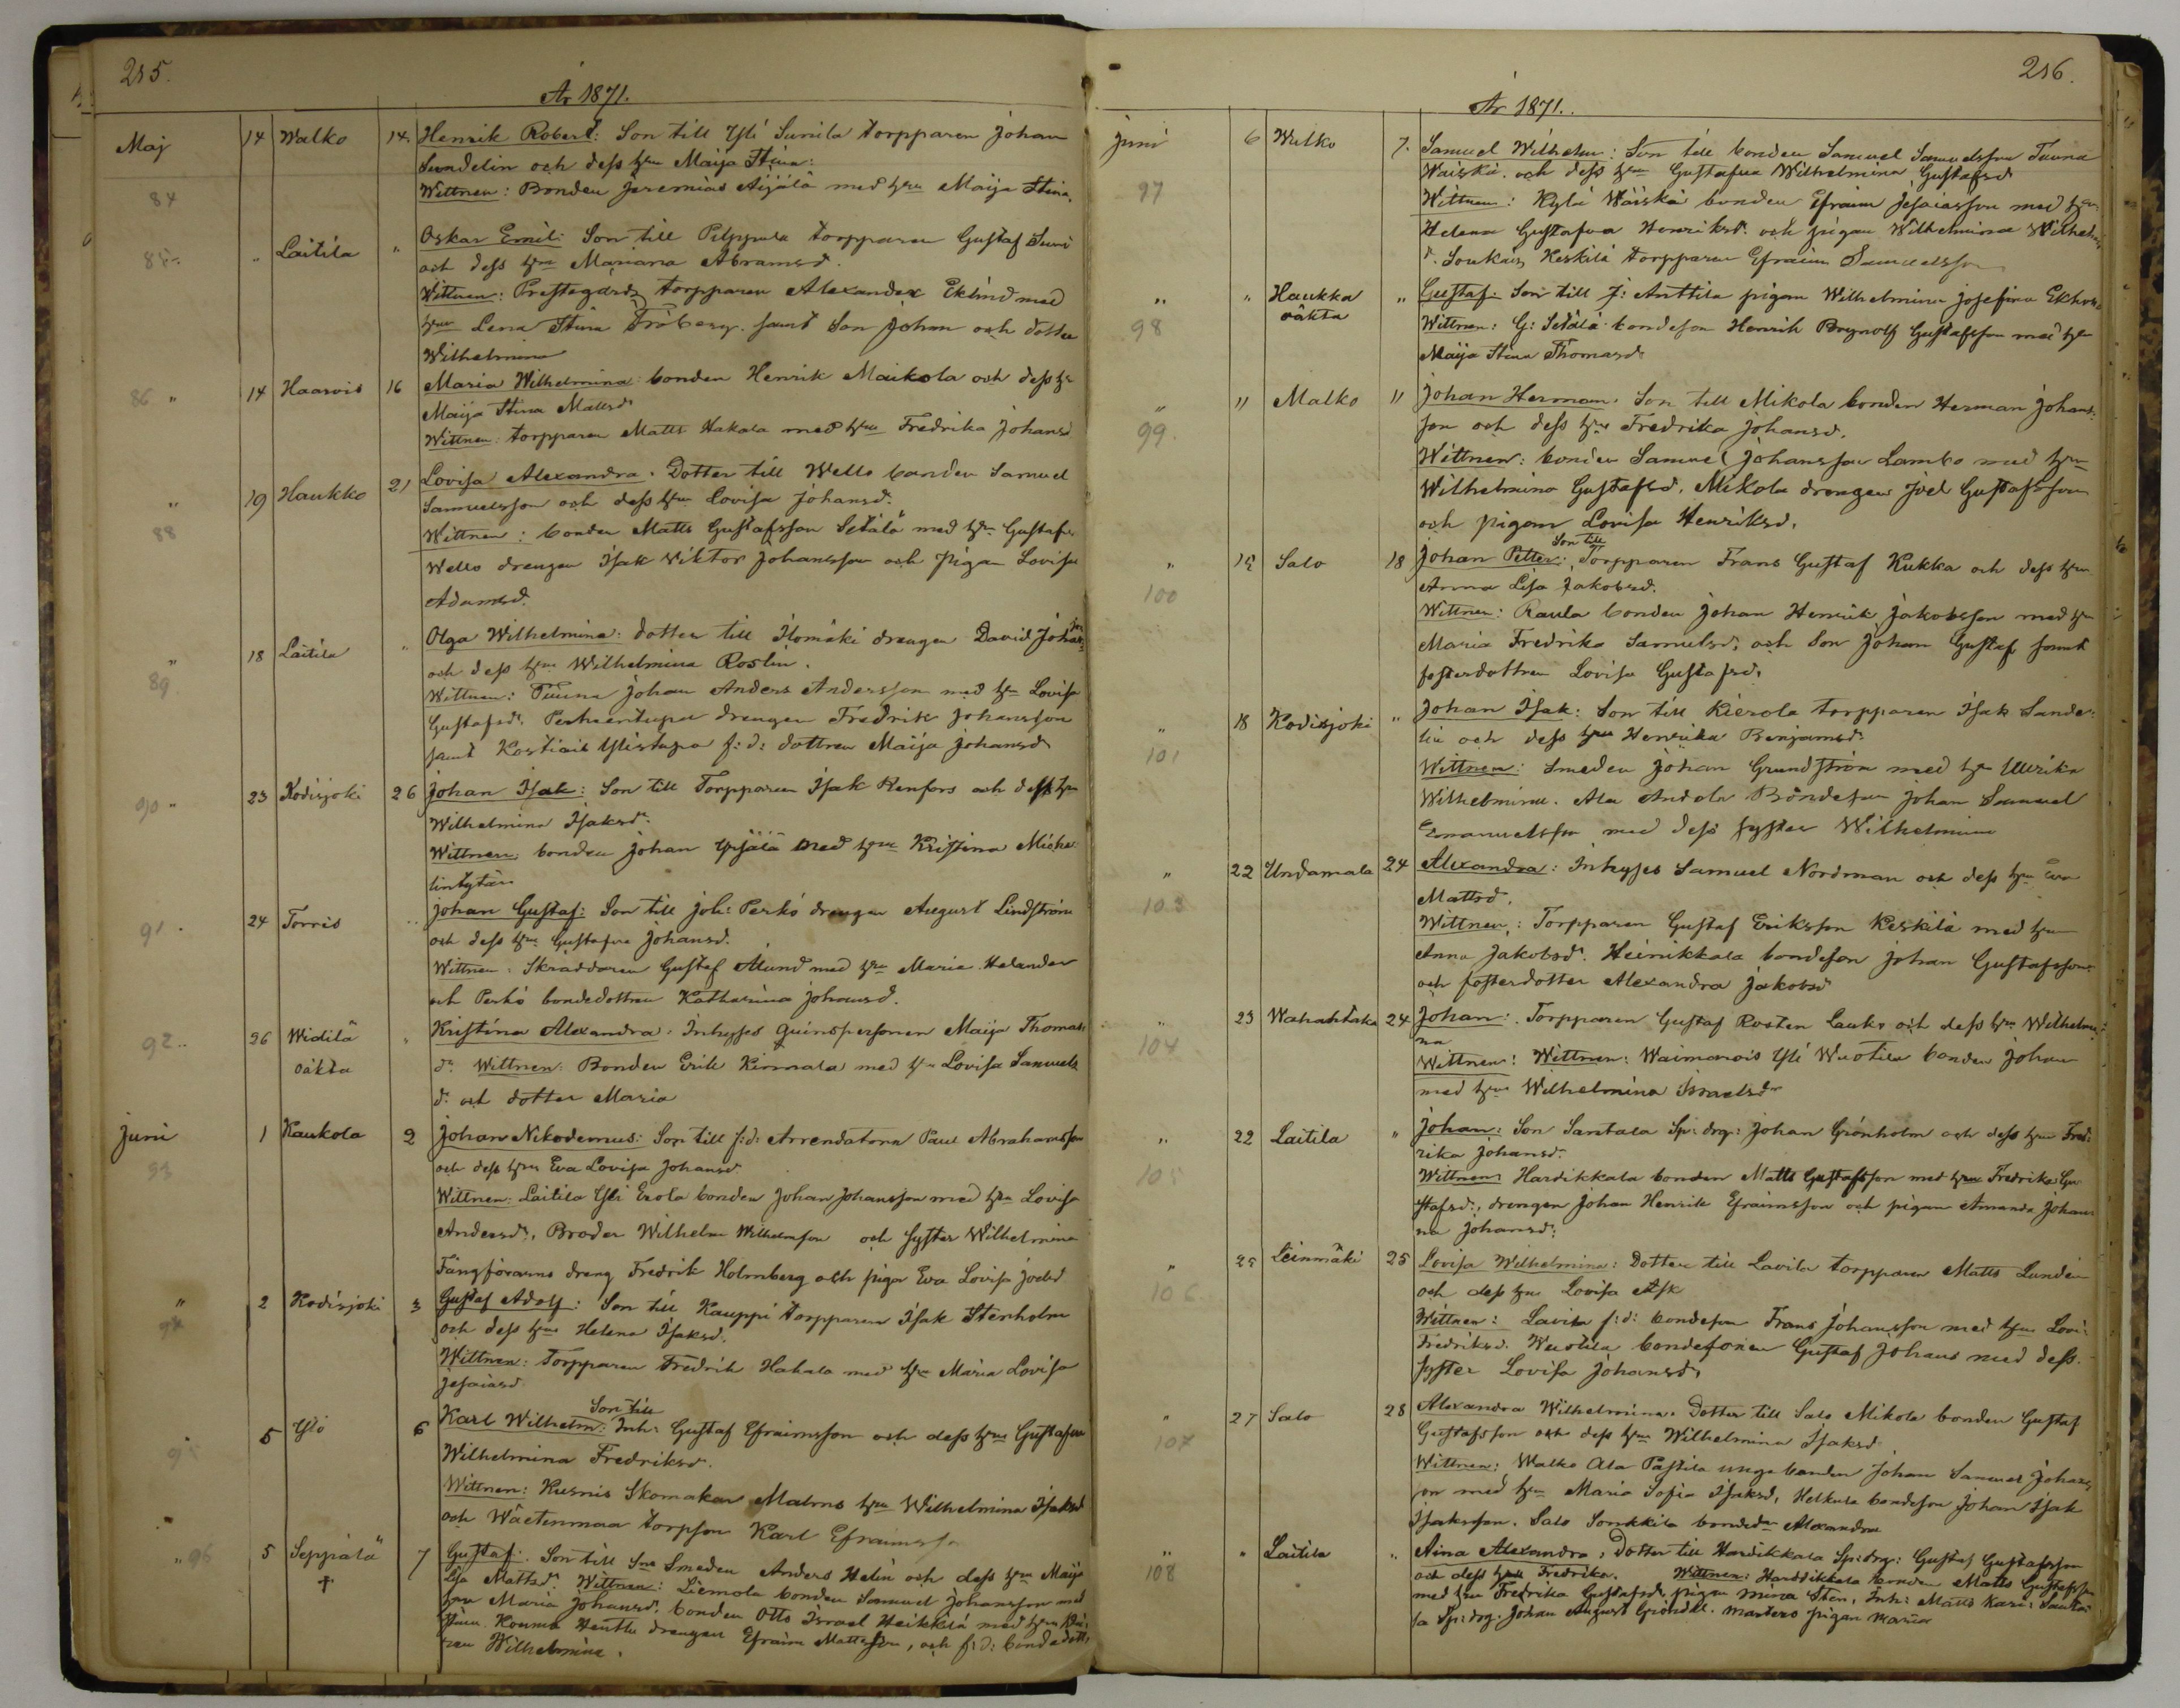 215.
År 1871.
Maj 14 Walko 14 Henrik Robert: Son till Yli Sunila torpparen Johan
Sundelin och dess hru Maija Stina:
84 Wittnen: Bonden Jeremias Äijälä med hru Maija Stina.
85 " Laitila " Oskar Emil: Son till Pilppula torpparen Gustaf Suni
och dess hru Mariana Abramsd.
Wittnen: Prestegårds torpparen Alexander Eklind med
hru Lena Stina Fröberg. samt Son Johan och dotter
Wilhelmina
86 " 14 Haarois 16 Maria Wilhelmina: bonden Henrik Maikola och dess hr
Maija Stina Mattsd.
Wittnen: torpparen Matts Hakala med hru Fredrika Johansd
" 19 Haukko 21 Lovisa Alexandra. Dotter till Wello bonden Samuel
Samuelsson och dess hru Lovisa Johansd.
88 Wittnen: bonden Matts Gustafsson Setälä med hru Gustafa
Wello drengen Isak Wiktor Johansson och pigan Lovisa
Adamsd.
" 18 Laitila " Olga Wilhelmina: dotter till Ilomäki drengen David Johans
son
89 och dess hru Wilhelmina Roslin.
Wittnen: Johan Anders Andersson med hru Lovisa
Gustafsd. drengen Fredrik Johansson
samt f: d: dottren Maija Johansd
90 " 23 Kodisjoki 26 Johan Isak: Son till Torpparen Isak Renfors och dess hru
Wilhelmina Isaksd.
Wittnen: bonden Johan Yijälä med hru Kristina Michel
lintytär
91 24 Torris " Johan Gustaf: Son till Joh: Perkö drengen August Lindström
och dess hru Gustafva Johansd.
Wittnen: Skräddaren Gustaf Mund med hru Maria Helander
och Perkö bondedottren Katharina Johansd.
92 26 Widilä " Kristina Alexandra: Inhyses qvinspersonen Maija Thomas
oäkta d: Wittnen: Bonden Erik Kinnala med hru Lovisa Samuels
d: och dotter Maria
Juni 1 Kaukola 2 Johan Nikodemus: Son till f:d: Arrendatorn Paul Abrahamsson
93 och dess hru Eva Lovisa Johansd
Wittnen: Laitila Yli Erola bonden Johan Johansson med hru Lovisa
Andersd., Broder Wilhelm Wilhelmsson och Syster Wilhelmina
Fångförarns dreng Fredrik Holmberg och piga Eva Lovisa Joelsd
" 2 Kodisjoki 3 Gustaf Adolf: Son till Kauppi torpparen Isak Stenholm
94 och dess hru Helena Isaksd.
Wittnen: Torpparen Fredrik Hakala med hru Maria Lovisa
Jesaiasd
Son till
" 5 Ylö 6 Karl Wilhelm: Inh: Gustaf Efraimsson och dess hru Gustafva
95 Wilhelmina Fredriksd.
Wittnen: Kusnis Skomakar Malms hru Wilhelmina Isaksd
och Wäetenmaa torpson Karl Efraimsson
" 96 5 Seppälä 7 Gustaf: Son till Sme Smeden Anders Helin och dess hru Maija
† Lisa Mattsd. Wittnen: Liemola bonden Samuel Johansson med
hru Maria Johansd. bonden Otto Israel Heikkilä med hru
Kouma Henttu drengen Efraim Mattsson, och f: d: bondedott
ren Wilhelmina.
216.
År 1871.
Juni 6 Walko 7. Samuel Wilhelm: Son till bonden Samuel Samuelsson Tauna
Wäiskä. och dess hru Gustafva Wilhelmina Gustafsd
97 Wittnen: Kylä Wäiskä bonden Efraim Jesaiasson med hru
Helena Gustafva Henriksd: och pigan Wilhelmina Wilhelms
d. Soukais Keskilä torpparen Efraim Samuelsson
" " Haukka " Gustaf: Son till J: Anttila pigan Wilhelmina Josefina Ekholm
oäkta
98 Wittnen: G: Setälä bondeson Henrik Brynolf Gustafsson med hru
Maija Stina Thomasd.
" 11 Malko 11 Johan Herman. Son till Mikola bonden Herman Johans
99 son och dess hru Fredrika Johansd.
Wittnen: bonden Samuel Johansson Lambo med hru
Wilhelmina Gustafsd. Mikola drengen Joel Gustafsson
och pigan Lovisa Henriksd.
Son till
" 15 Salo 18 Johan Petter: Torpparen Frans Gustaf Kukka och dess hru
100 Anna Lisa Jakobsd.
Wittnen: Raula bonden Johan Henrik Jakobsson med hru
Maria Fredrika Samuelsd. och Son Johan Gustaf samt
fosterdottren Lovisa Gustafsd.
" 18 Kodisjoki " Johan Isak: Son till Kierola torpparen Isak Sande-
lin och dess hru Henrika Benjamsd.
101 Wittnen: Smeden Johan Grundström med hru Ulrika
Wilhelmina. Ala Andola Bondeson Johan Samuel
Emanuelsson med dess syster Wilhelmina
" 22 Undamala 24 Alexandra: Inhyses Samuel Nordman och dess hru Eva
103 Mattsd.
Wittnen: Torpparen Gustaf Eriksson Keskilä med hru
Anna Jakobsd. Heinikkala bondeson Johan Gustafsson
och fosterdotter Alexandra Jakobsd
" 23 Wahantaka 24 Johan: Torpparen Gustaf Rosten Lauko och dess hru Wilhelmi
104 na
Wittnen: Wittnen: Waimarois Yli Wuotila bonden Johan
med hru Wilhelmina Israelsd
" 22 Laitila " Johan: Son Santala Sp: drg: Johan Grönholm och dess hru Fred-
105 rika Johansd.
Wittnen: Hardikkala bonden Matts Gustafsson med hru Fredrika Gu
stafsd., drengen Johan Henrik Efraimsson och pigan Amanda Johan
na Johansd.
" 25 Leinmäki 25 Lovisa Wilhelmina: Dotter till Lavila torpparen Matts Lundin
106 och dess hru Lovisa Ask
Wittnen: Lavila f: d: bondeson Frans Johansson med hru Lovi:
Fredriksd. Wuotila bondesonen Gustaf Johans med dess
syster Lovisa Johansd.
" 27 Salo 28 Alexandra Wilhelmina. Dotter till Salo Mikola bonden Gustaf
107 Gustafsson och dess hru Wilhelmina Isaksd
Wittnen: Walko Ala Pastila unge bonden Johan Samuel Johans
son med hru Maria Sofia Isaksd, Helkula bondeson Johan Isak
Isaksson. Salo Sonkkila bondedr Alexandra
" " Laitila " Aina Alexandra, Dotter till Hardikkala Sp: drg: Gustaf Gustafsson
108 och dess hru Fredrika. Wittnen: Hardikkala bonden Matts Gustafsson
med hru Fredrika Gustafsd. pigan Mina Sten, Inh: Matts Kari: Santa
la Sp: drg. Johan August Gröndal. Marters pigan Maria